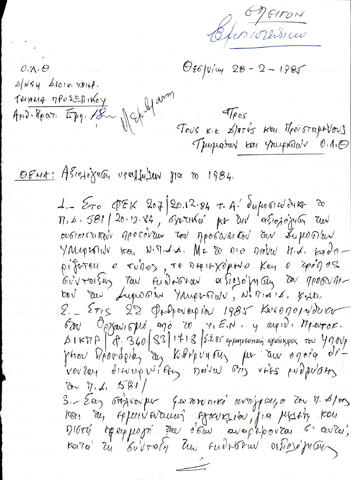 ΕΠΕΙΓΟΝ
Εμπιστευτικόν
Ο.Λ.Θ
Δ/ΝΣΗ ΔΙΟΙΚ. ΥΠΗΡ.
ΤΜΗΜΑ ΠΡΟΣΩΠΙΚΟΥ
Αριθ. Πρωτ. Εμπ.
Θεσ/νίκη 28-2-1985
Προς
Τους κ.κ Δ/ντές και Προϊσταμένους
Τμημάτων και Υπηρεσιών Ο.Λ.Θ
ΘΕΜΑ: Αξιολόγηση υπαλλήλων για το 1984.
1.- Στο ΦΕΚ 207/20.12.84 τ. Α' δημοσιεύθηκε το
Π.Δ. 581/20.12.84, σχετικά με την αξιολόγηση των
ουσιαστικών προσόντων του προσωπικού των Δημοσίων
Υπηρεσιών και Ν.Π.Δ.Δ. Με το πιο πάνω Π.Δ. καθο-
ρίζεται ο τύπος, το περιεχόμενο και ο τρόπος
σύνταξης των εκθέσεων αξιολόγησης του προσωπι-
κού των Δημοσίων Υπηρεσιών, Ν.Π.Δ.Δ. κ.λ.π.
2.- Στις 22 Φεβρουαρίου 1985 κοινοποιήθηκε
στον Οργανισμό, από το Υ.Ε.Ν. η αριθ. Πρωτοκ.
ΔΙΚΠΡ/ερμηνευτική εγκύκλιος του Υπουρ-
γείου Προεδρίας της Κυβέρνησης με την οποία δί-
νονται διευκρινίσεις πάνω στις νέες ρυθμίσεις
του Π.Δ. 581/
3.- Σας στέλνουμε φωτοτυπικό αντίγραφο του Π.Δ/τος
και της ερμηνευτικής εγκυκλίου, για μελέτη και
πιστή εφαρμογή των όσων αναφέρονται σ' αυτά,
κατά τη σύνταξη των εκθέσεων αξιολόγησης